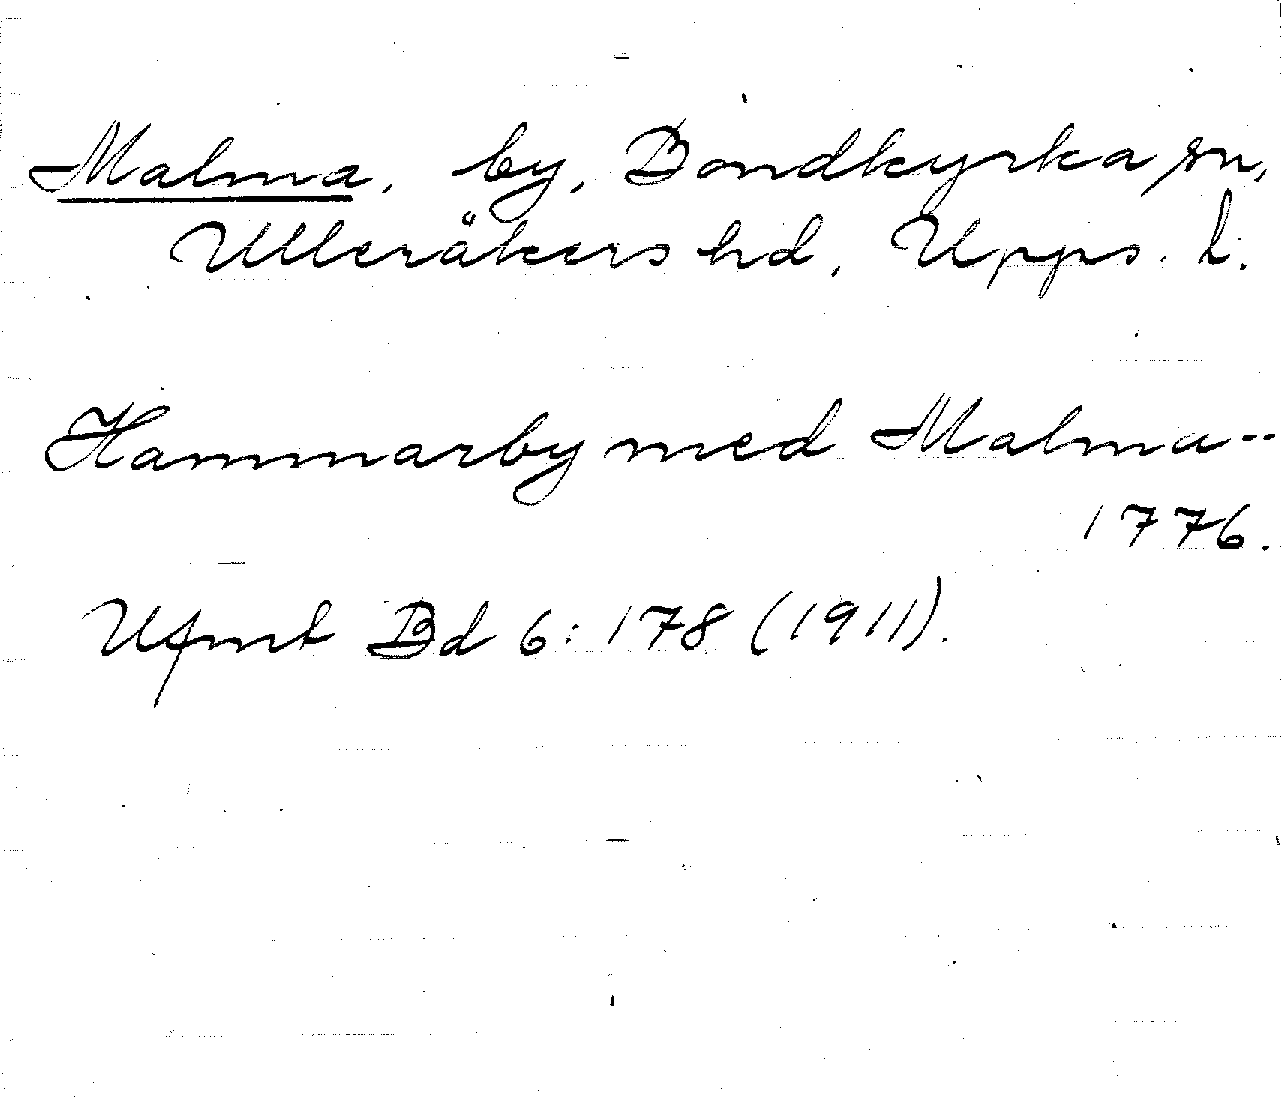 Malma, by, Bondkyrka sn,
Ulleråkers hd, Upps. l.
Hammarby med Malma --
1776.
Ufmt Bd 6: 178 (1911).